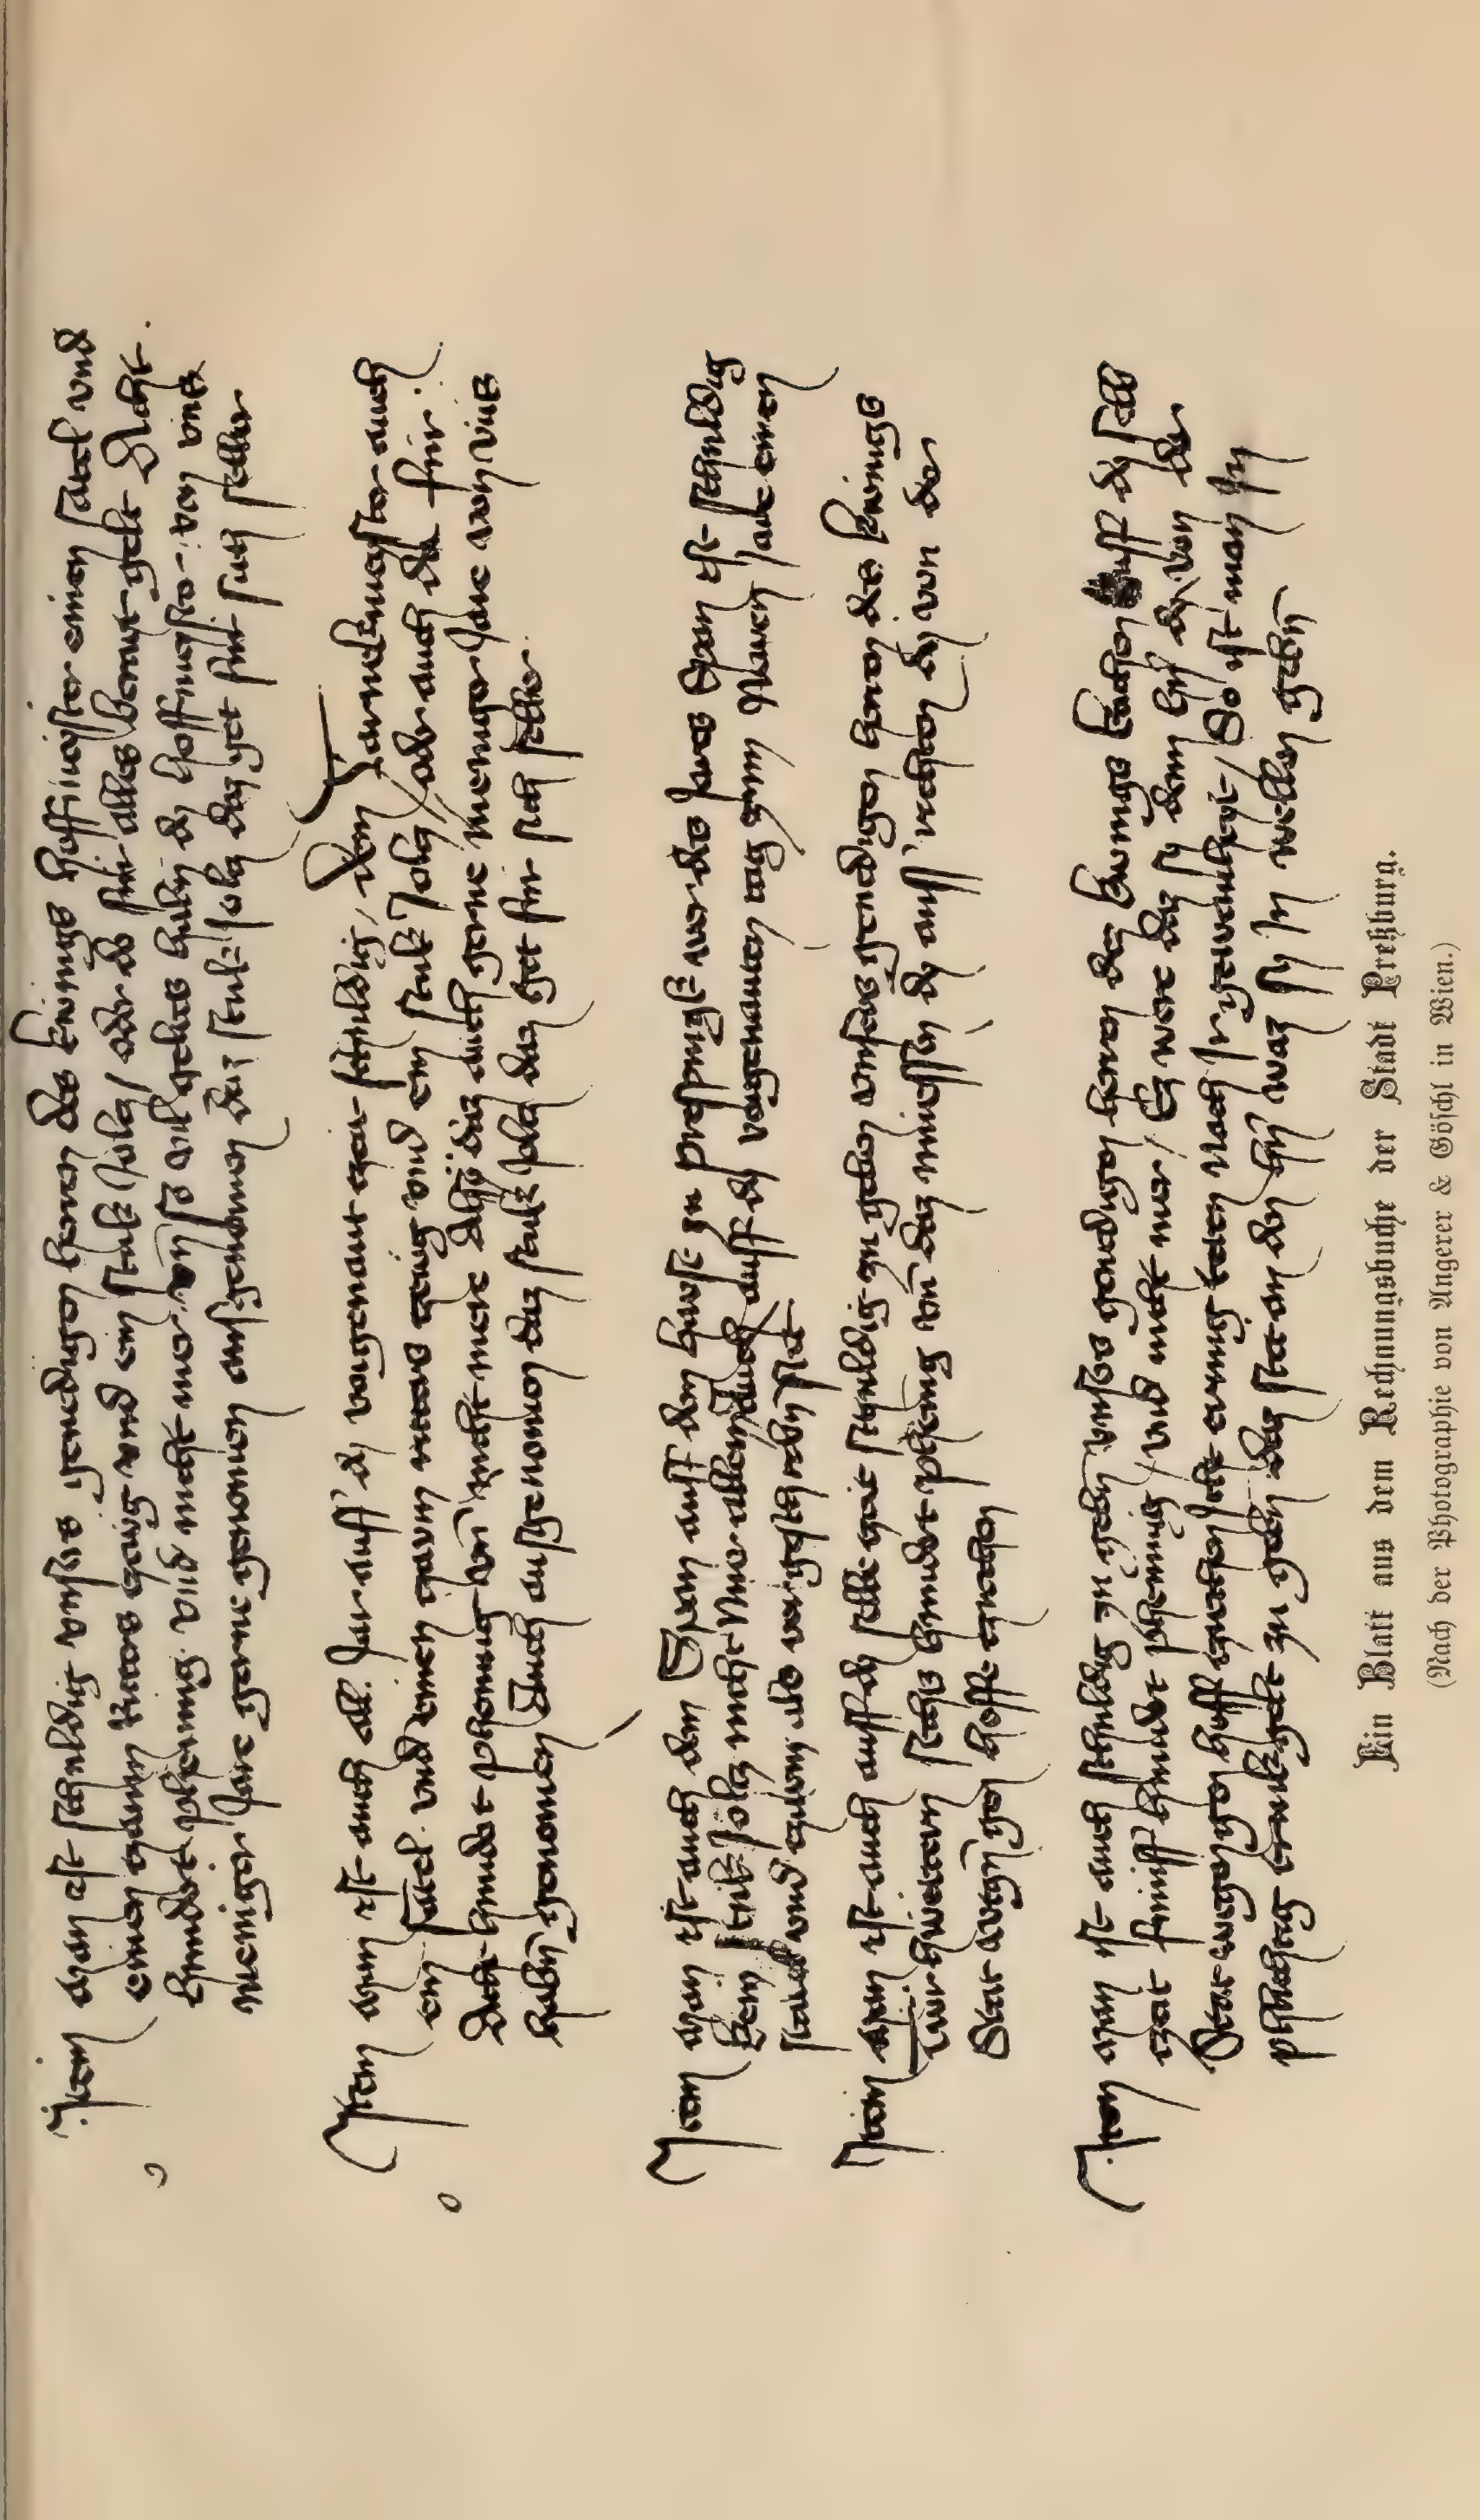 Item man ist schuldig vnsers genedigen heren des kunigs hoffmaister einen satel vnd
einen zawm stewr zewg vnd ein stuk solcz / oder do für alles beraut gelt Acht
hundert phenning vnd nicht mer vnd so vil geltes habn dy hoffmaister von vns
meniger Jare gerne genomen ausgenomen daz stuk solcz daz get für sich selber
Item man ist auch all Jar auff dy vorgenant czeit schuldig / dem Tarnekmaister auch
ein satel vnd einen zawm zewg vnd ein stuk solcz / ader auch da für
Acht hundert phennig vnd nicht mere Also daz auch gerne meniger Jare von vns
habn genomen Auch ausgenomen daz stuk solcz daz get für sich selber
Item man ist auch dem Span auff dem hawse zu prespurgk von des Jares Span ist schuldig
kein stuk solcz nicht Nur allein auch auff dy vorgenanten tag zum Newen Jare einen
satel vnd zawm als vorgeschriben stet
Item man ist auch auff dy selbe zeit schuldig zu geben vnsers genedigen heren des kunigs
Turhuetern sechs hundert phennig vnd daz muessen dy auff richten dy von der
Stat wegen gen hoffe czihen
Item man ist auch schuldig zu gebn vnsers genedigen heren des kunigs kochen auff dy selb
czeit fumff hundert phennig / vnd nicht mer / Es were daz sy dann hy dy von der
Stat wegen gen hoff czihen icht nach Ir gewonhait / So ist man In
phlichtig trinkgelt zu gebn daz stet an den hy waz sy In wellen gebn
Ein Blatt aus dem Rechnungsbuche der Stadt Preßburg.
(Nach der Photographie von Angerer & Göschl in Wien.)